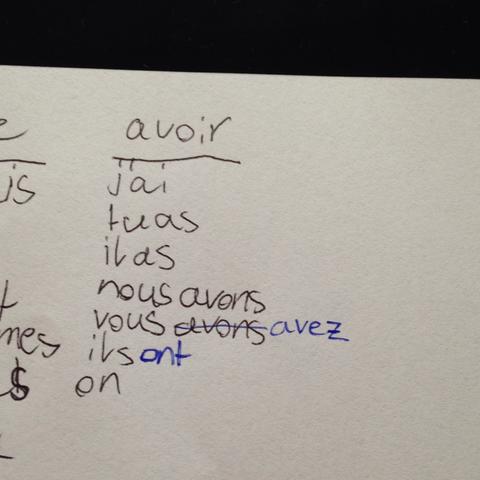 avoir
jai
tu as
il as
nous avons
vous avons avez
ils ont
on